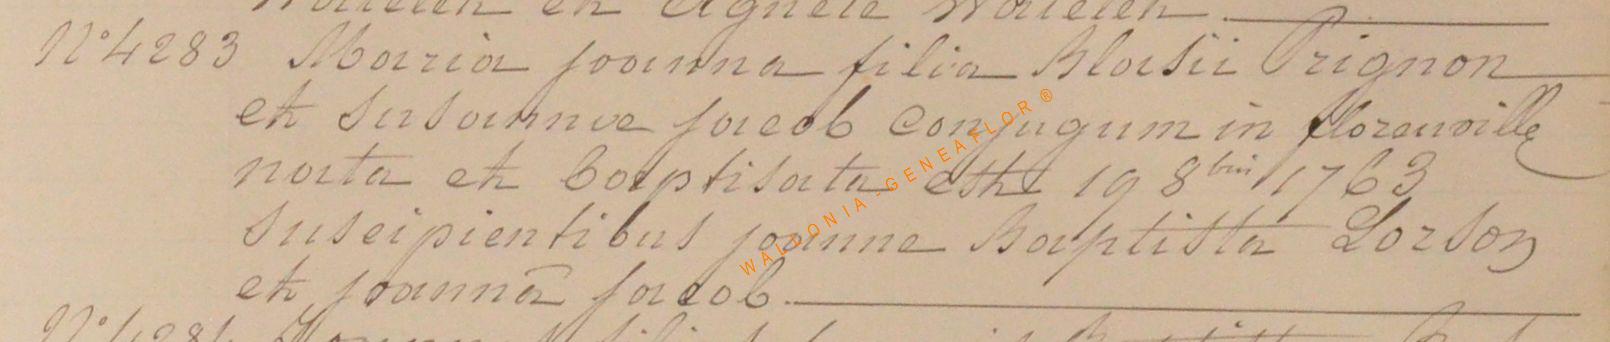 et Agnete
N° 4283 Maria joanna filia Blasii Prignon
et Susannae jacob Conjugum in florenville
nata et baptisata est 19 8bris 1763
suscipientibus joanne Baptista Lorson
et joannā jacob.
WALLONIA-GENEAFLOR ®